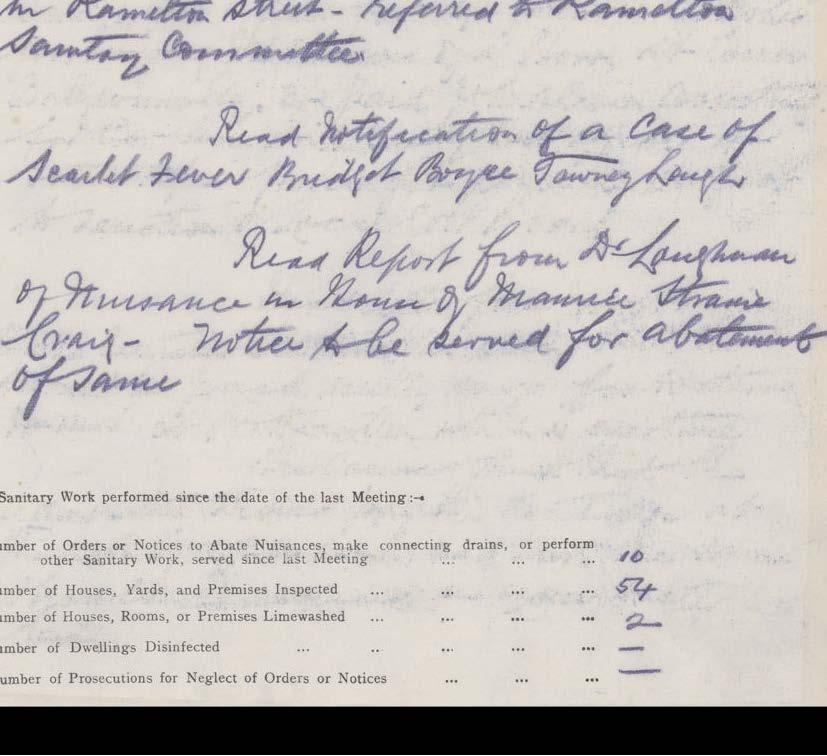 in Ramelton Street - referred to Ramelton
Sanitary Committee
Read Notification of a Case of
Scarlet Fever Bridget Boyce Tawney Laugh
Read Report from Dr Loughman
of Nuisance in House of Maurice
Craig - Notice to be served for abatement
of same
Sanitary Work performed since the date of the last Meeting :-
umber of Orders or Notices to Abate Nuisances, make connecting drains, or perform
other Sanitary Work, served since last Meeting ... ... ... 10
umber of Houses, Yards, and Premises Inspected ... ... ... ... 54
umber of Houses, Rooms, or Premises Limewashed ... ... ... ... 2
umber of Dwellings Disinfected ... .. ... ... ... —
umber of Prosecutions for Neglect of Orders or Notices ... ... ... —